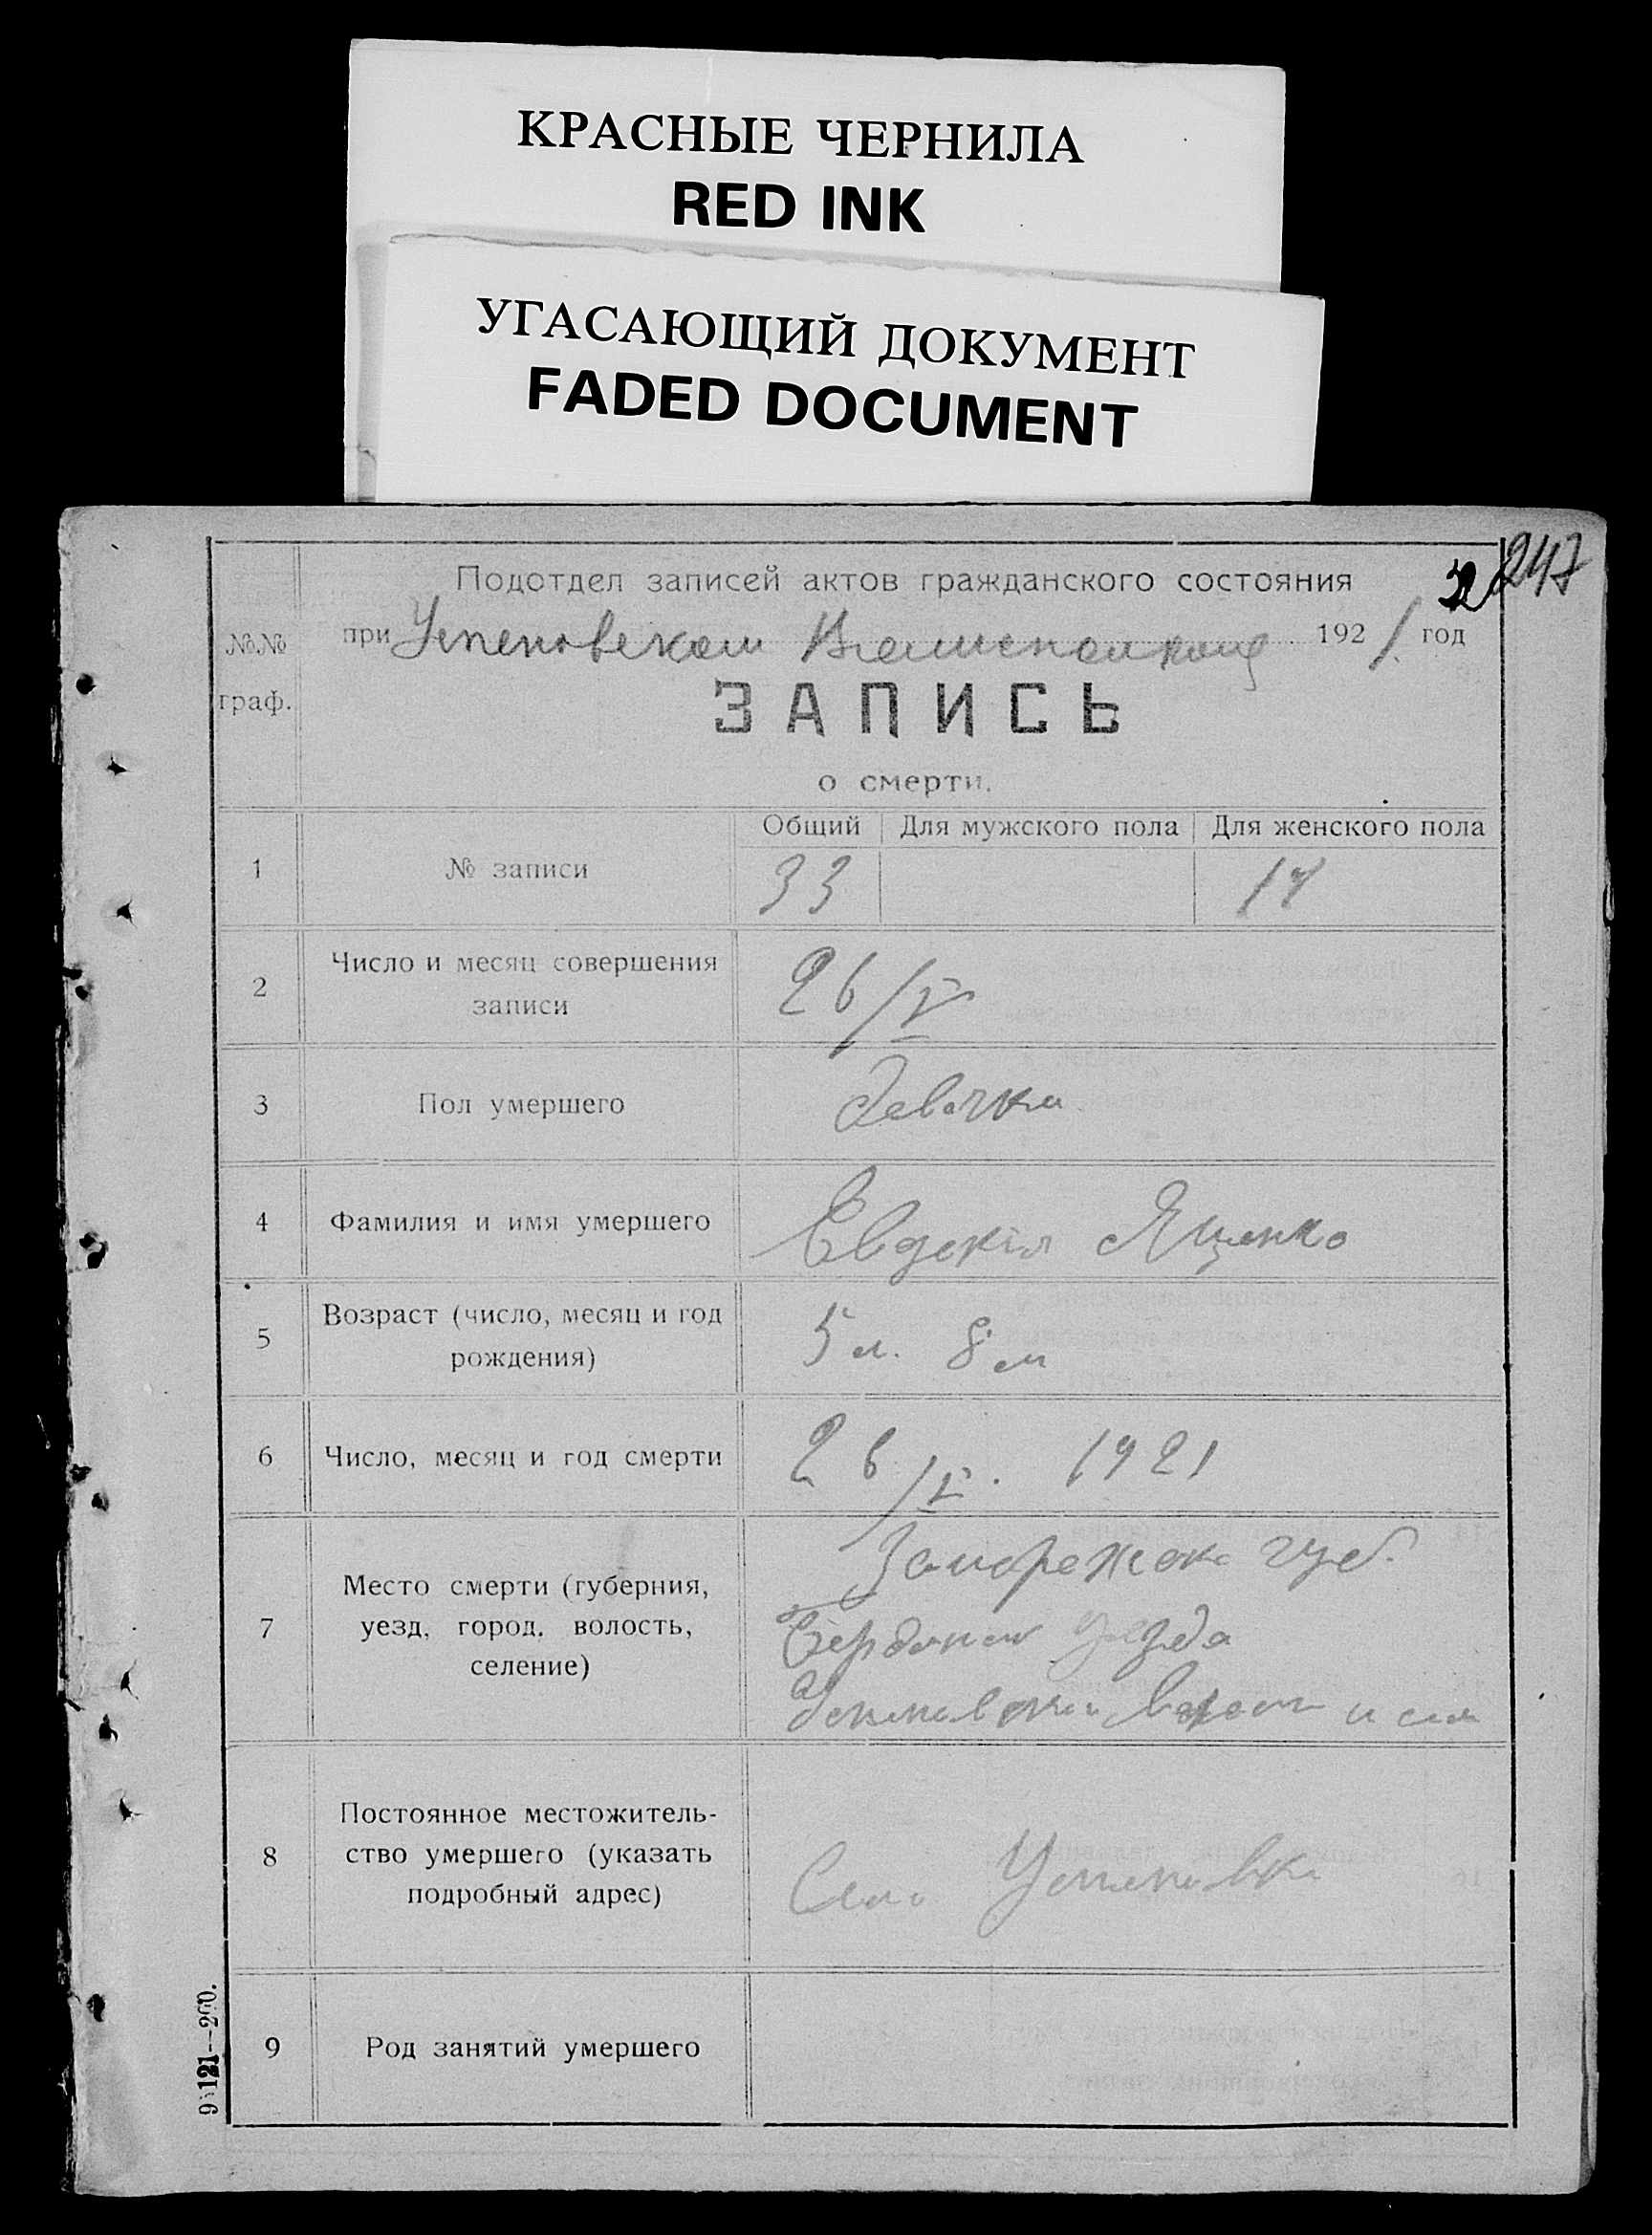 КРАСНЫЕ ЧЕРНИЛА
RED INK
УГАСАЮЩИЙ ДОКУМЕНТ
FADED DOCUMENT
247
Подотдел записей актов гражданского состояния
№№ граф.
при Успеновском 1921 год
ЗАПИСЬ
о смерти.
Общий Для мужского пола Для женского пола
1 № записи 33 17
2 Число и месяц совершения
записи 26/V
3 Пол умершего девочка
4 Фамилия и имя умершего Евдокія Ященко
5 Возраст (число, месяц и год
рождения) 5 л. 8 м
6 Число, месяц и год смерти 26/V. 1921
7 Место смерти (губерния,
уезд, город, волость,
селение)
губ.
уезда
и села
8 Постоянное местожитель-
ство умершего (указать
подробный адрес)
Село Успеновка
9 Род занятий умершего